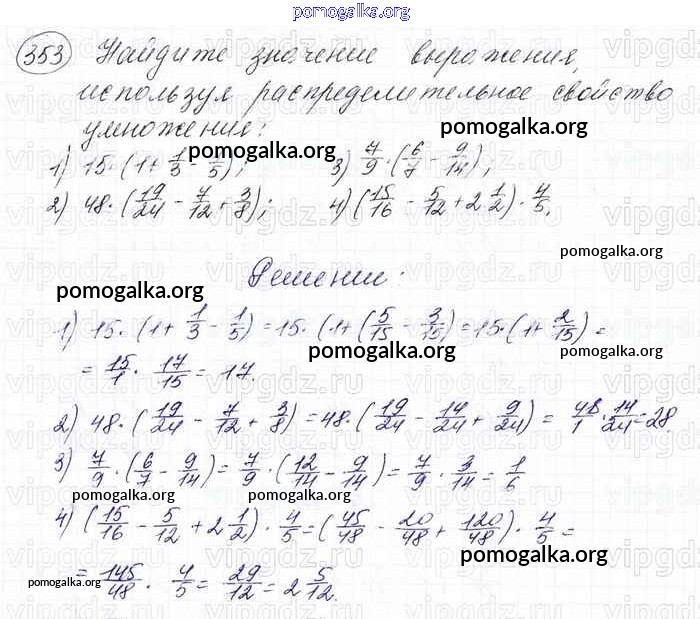 pomogalka.org
353 Найдите значение выражения,
используя распределительное свойство
умножения:
pomogalka.org
pomogalka.org
1) 15·(1+1/3-1/5); 3) 7/9·(6/7-9/14);
2) 48·(19/24-7/12+3/8); 4) (15/16-5/12+2 1/2)·4/5.
pomogalka.org
Решение:
pomogalka.org
1) 15·(1+1/3-1/5)=15·(1+(5/15-3/15)=15·(1+2/15)=
pomogalka.org
pomogalka.org
=15/1·17/15=17.
2) 48·(19/24-7/12+3/8)=48·(19/24-14/24+9/24)=48/1·14/24=28
3) 7/9·(6/7-9/14)=7/9·(12/14-9/14)=7/9·3/14=1/6
pomogalka.org
pomogalka.org
4) (15/16-5/12+2 1/2)·4/5=(45/48-20/48+120/48)·4/5=
pomogalka.org
=145/48·4/5=29/12=2 5/12.
pomogalka.org